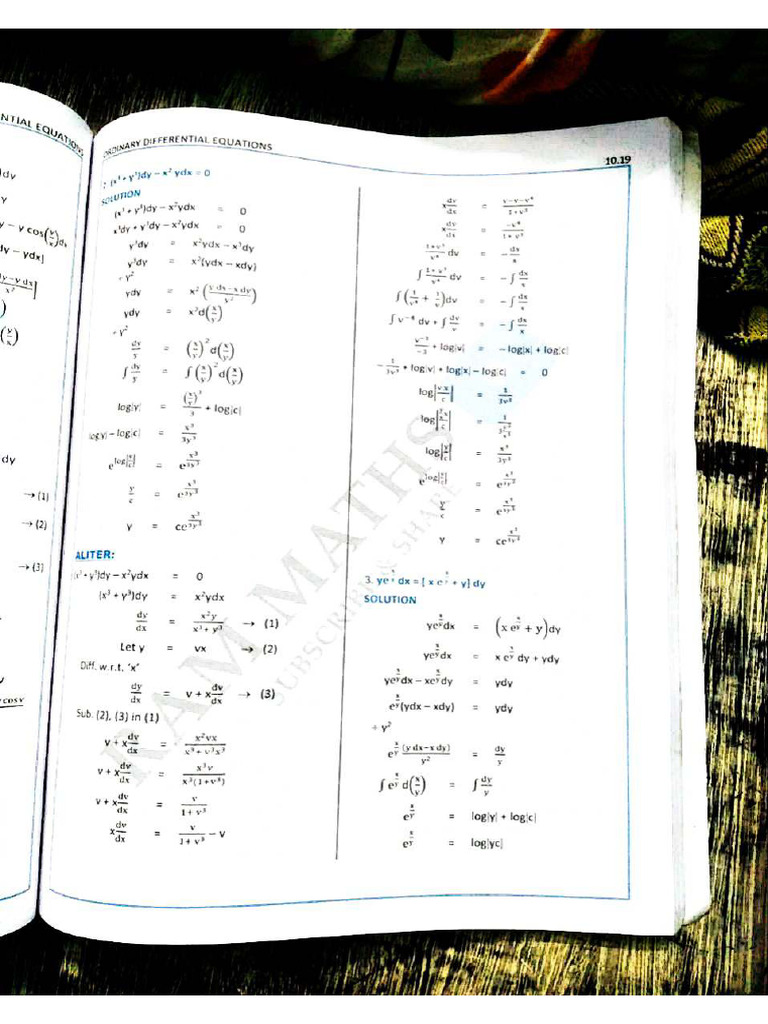 NTIAL EQUATIONS
dv
y
y – y cos(y/x)dx
dy – ydx]
dy – y dx / x²
(y/x)
dy
→ (1)
→ (2)
→ (3)
y cos v
ORDINARY DIFFERENTIAL EQUATIONS
10.19
2. (x³ + y³)dy – x² ydx = 0
SOLUTION
(x³ + y³)dy – x²ydx = 0
x³dy + y³dy – x²ydx = 0
y³dy = x²ydx – x³dy
y³dy = x²(ydx – xdy)
÷ y²
ydy = x² (y dx – x dy / y²)
ydy = x²d(x/y)
÷ y²
dy/y = (x/y)² d(x/y)
∫ dy/y = ∫ (x/y)² d(x/y)
log|y| = (x/y)³/3 + log|c|
log|y| – log|c| = x³/3y³
e^log|y/c| = e^(x³/3y³)
y/c = e^(x³/3y³)
y = ce^(x³/3y³)
ALITER:
(x³ + y³)dy – x²ydx = 0
(x³ + y³)dy = x²ydx
dy/dx = x²y / x³ + y³ → (1)
Let y = vx → (2)
Diff. w.r.t. 'x'
dy/dx = v + x dv/dx → (3)
Sub. (2), (3) in (1)
v + x dv/dx = x²vx / x³ + v³x³
v + x dv/dx = x³v / x³(1 + v³)
v + x dv/dx = v / 1 + v³
x dv/dx = v / 1 + v³ – v
x dv/dx = v – v – v⁴ / 1 + v³
x dv/dx = –v⁴ / 1 + v³
1 + v³ / v⁴ dv = – dx/x
∫ 1 + v³ / v⁴ dv = – ∫ dx/x
∫ (1/v⁴ + 1/v)dv = – ∫ dx/x
∫ v⁻⁴ dv + ∫ dv/v = – ∫ dx/x
v⁻³/–3 + log|v| = – log|x| + log|c|
– 1/3v³ + log|v| + log|x| – log|c| = 0
log|vx/c| = 1/3v³
log|y/x x / c| = 1 / 3 y³/x³
log|y/c| = x³/3y³
e^log|y/c| = e^(x³/3y³)
y/c = e^(x³/3y³)
y = ce^(x³/3y³)
3. ye^(x/y) dx = [ x e^(x/y) + y] dy
SOLUTION
ye^(x/y)dx = (x e^(x/y) + y)dy
ye^(x/y)dx = x e^(x/y) dy + ydy
ye^(x/y)dx – xe^(x/y)dy = ydy
e^(x/y)(ydx – xdy) = ydy
÷ y²
e^(x/y) (y dx – x dy) / y² = dy/y
∫ e^(x/y) d(x/y) = ∫ dy/y
e^(x/y) = log|y| + log|c|
e^(x/y) = log|yc|
RAM MATHS
SUBSCRIBE & SHARE